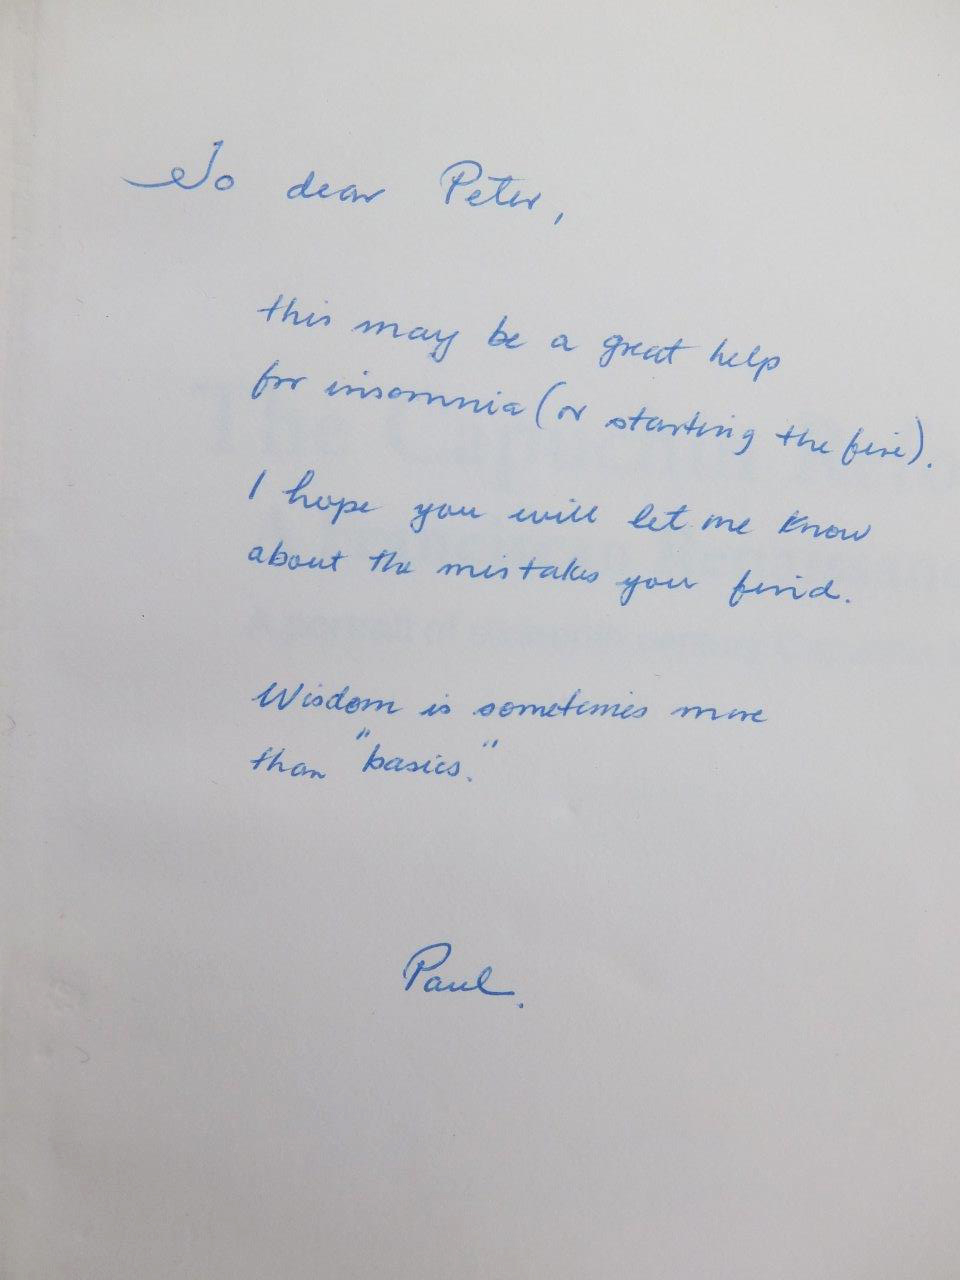 To dear Peter,
this may be a great help
for insomnia (or starting the fire).
I hope you will let me know
about the mistakes you find.
Wisdom is sometimes more
than "basics."
Paul.